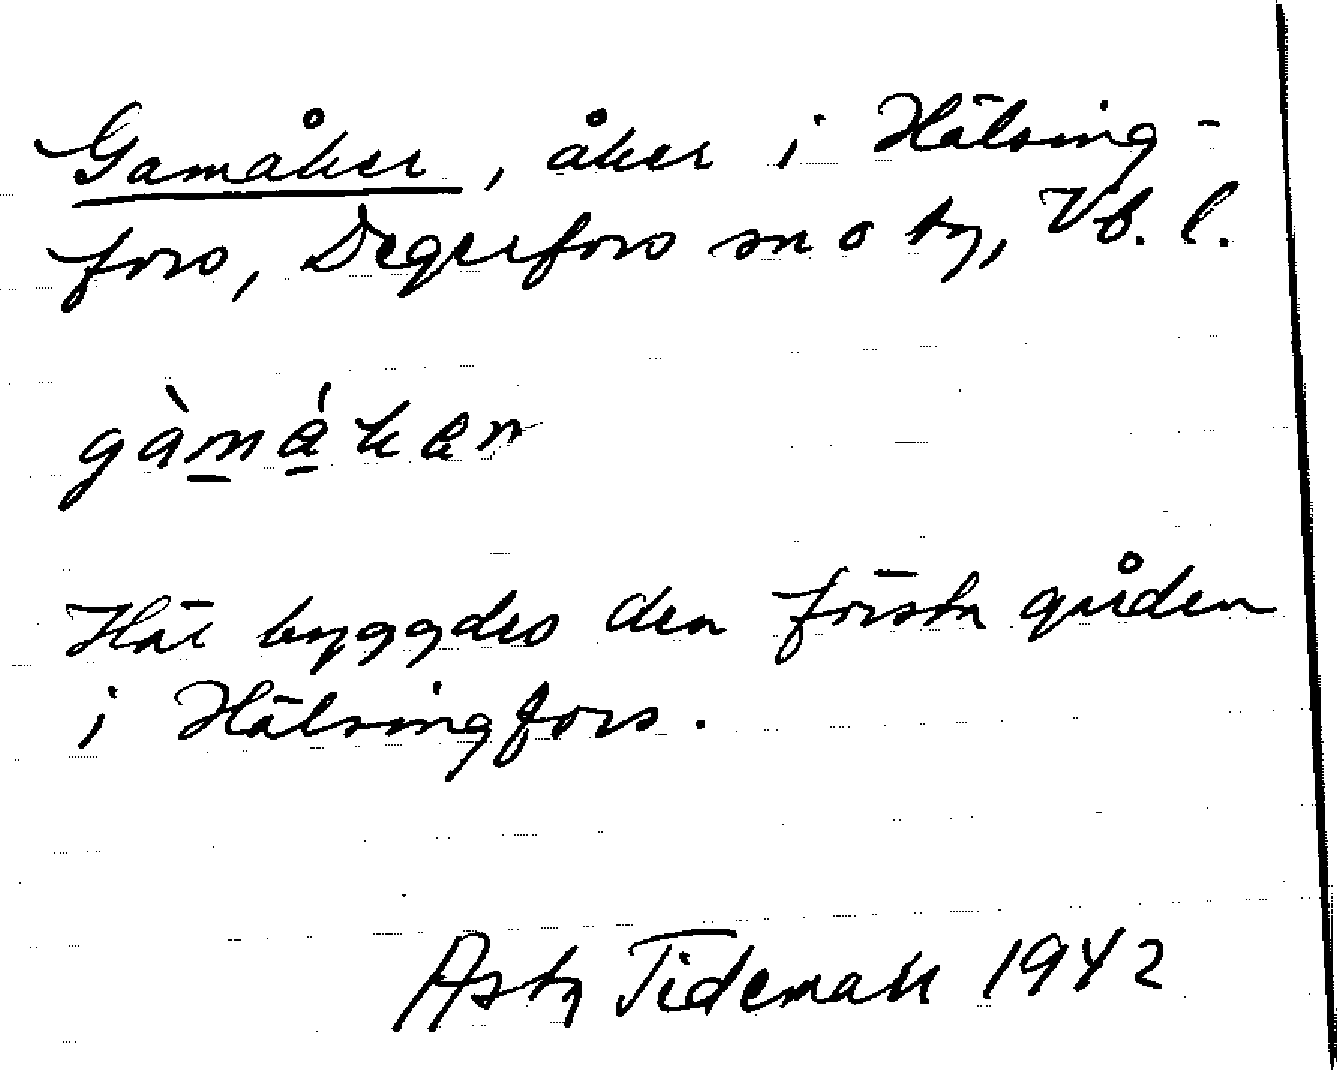 Gamåker, åker i Hälsing-
fors, Degerfors sn o by, Vb. l.
gàmákar
Här byggdes den första gården
i Hälsingfors.
Asta Tideman 1942